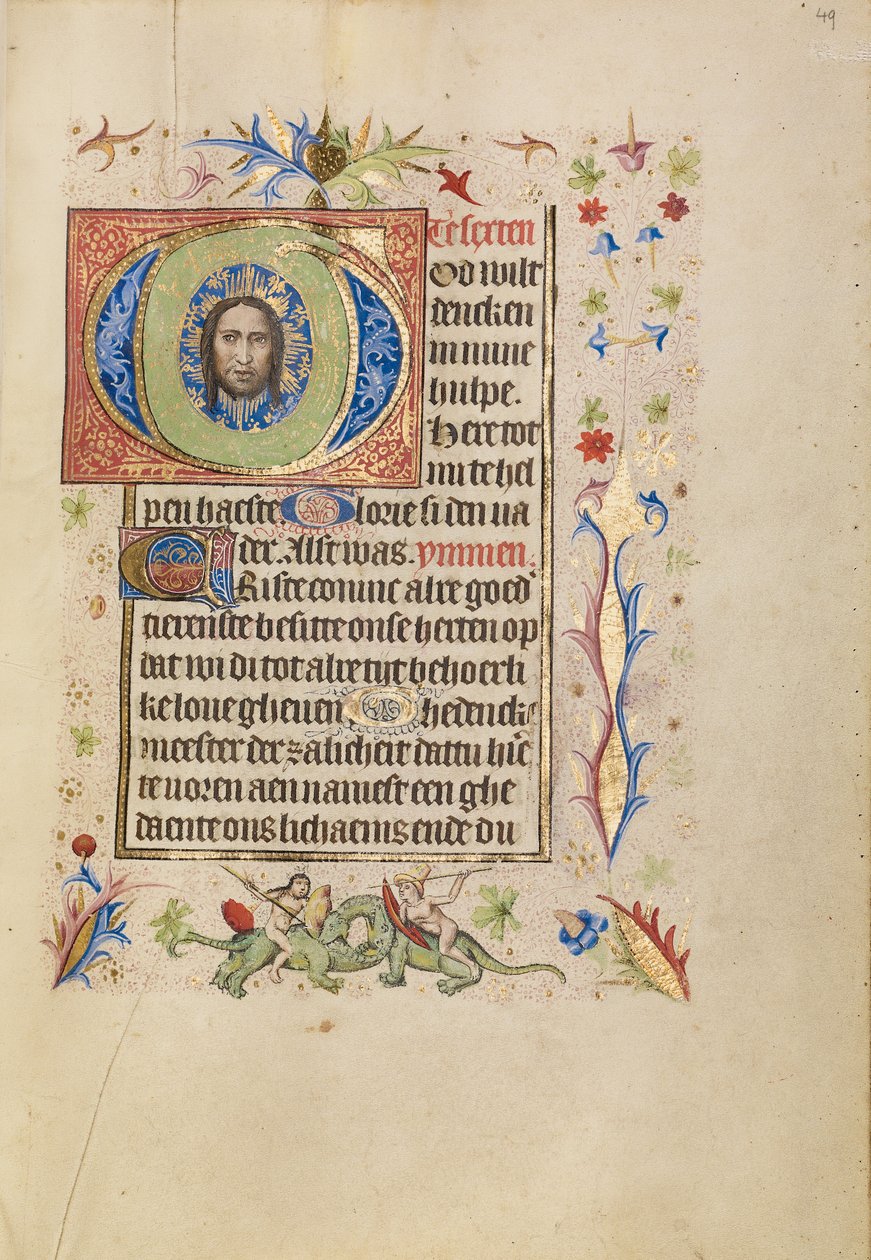 49
Te sexten
God wilt
dencken
in mine
hulpe.
Here tot
mi te hel
pen haeste Glorie si den va
der. Alst was. ymmen.
Criste coninc alre goed
tierenste besitte onse herten op
dat wi di tot alre tijt behoerli
ke loue gheuen Ghedencke
meester der zalicheit dattu hier
te uoren aen namest een ghe
daente ons lichaems ende du